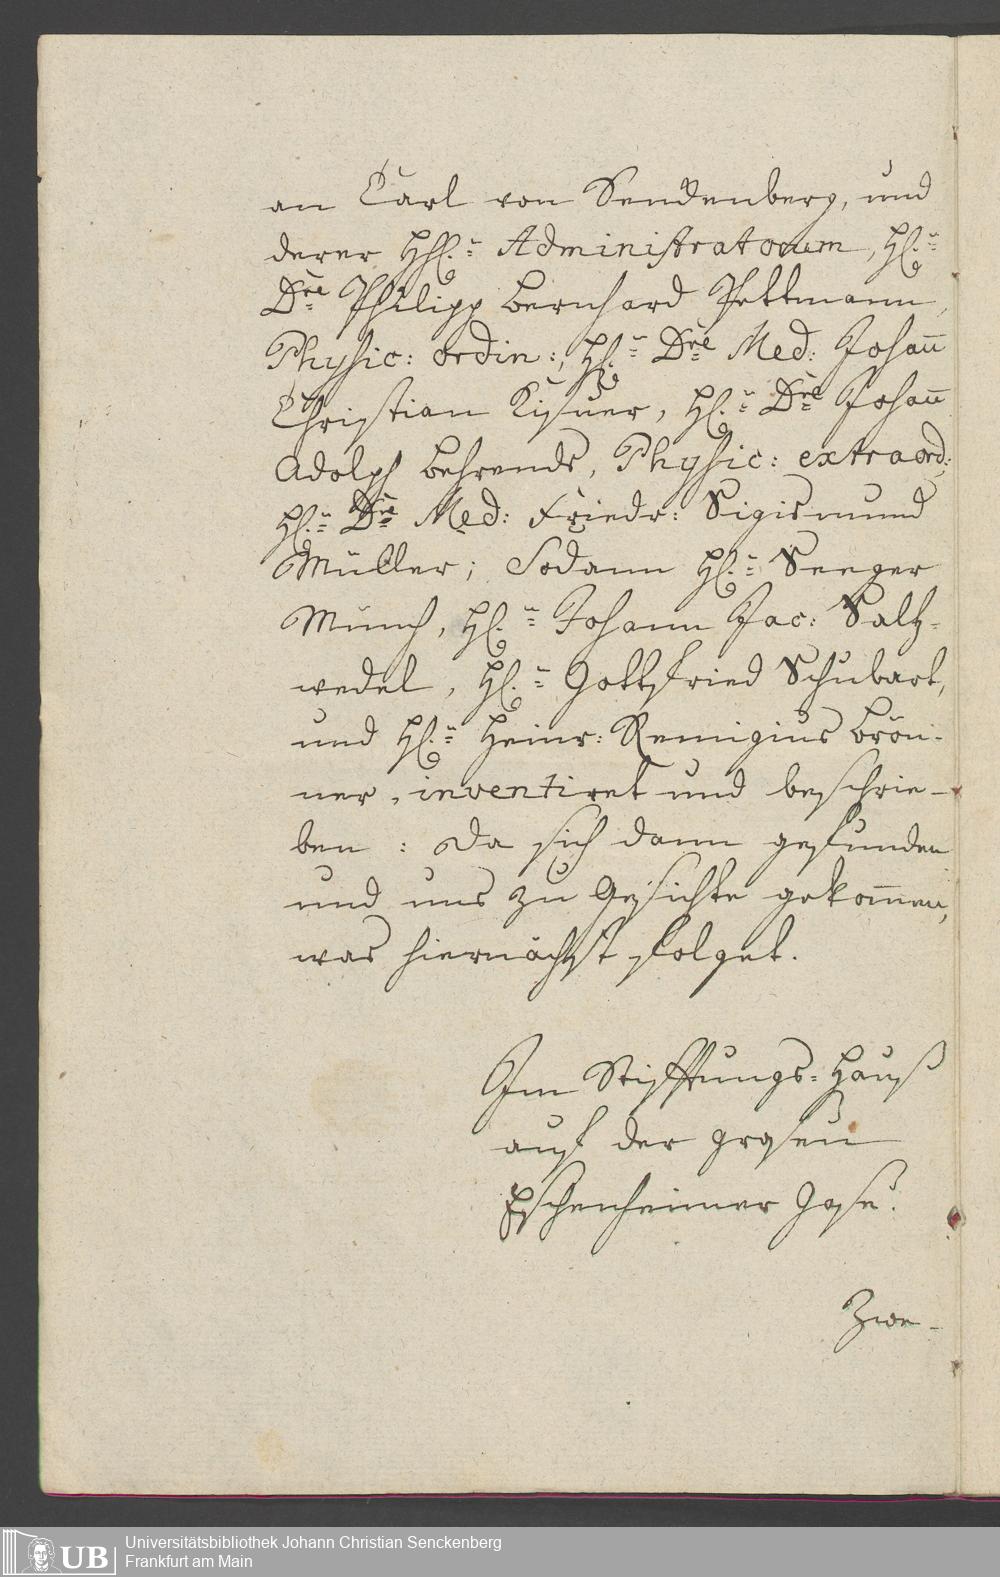 an Carl von Senckenberg, und
derer HH.n Administratorum, H.n
Dre Philipp Bernhard Pettmann,
Physic: ordin:, H.n Dre Med: Johañ
Christian Kisner, H.n Dre Johañ
Adolph Behrends, Physic: extraord:,
H.n Dre Med: Friedr: Sigismund
Müller; Sodann H.n Seeger
Münch, H.n Johann Jac: Saltz-
wedel, H.n Gottfried Schubart,
und H.n Heinr: Remigius Brön-
ner, inventiret und beschrie-
ben: Da sich dann gefunden
und uns zu Gesichte gekom̄en,
was hiernächst folget.
Im Stifftungs-Hauß
auf der grosen
Eschenheimer Gase.
Zwe-
UB
Universitätsbibliothek Johann Christian Senckenberg
Frankfurt am Main